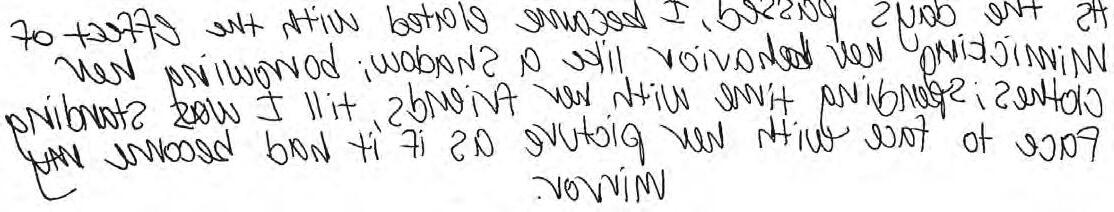 As the days passed, I became elated with the effect of
mimicking her behavior like a shadow; borrowing her
clothes; spending time with her friends, till I was standing
face to face with her picture as if it had become my
mirror.